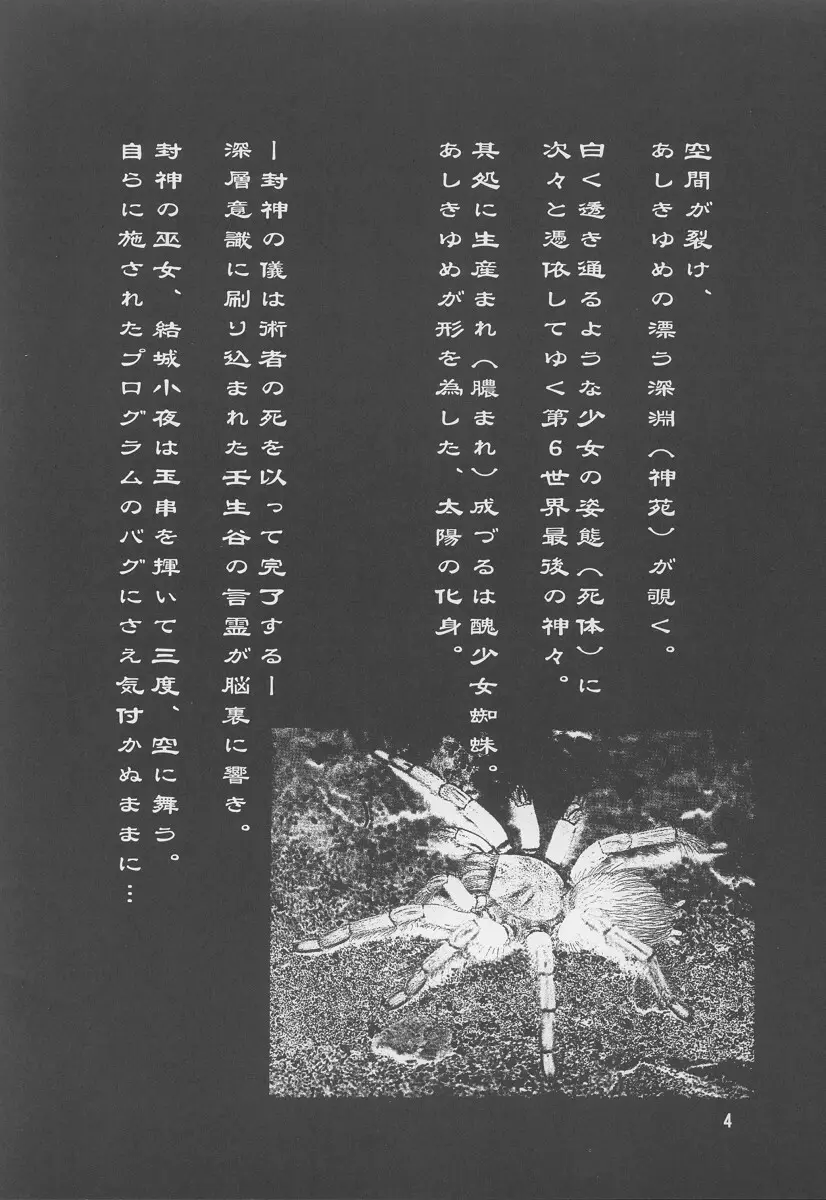 空間が裂け、
あしきゆめの漂う深淵（神苑）が覗く。
白く透き通るような少女の姿態（死体）に
次々と憑依してゆく第6世界最後の神々。
其処に生産まれ（膿まれ）成づるは醜少女蜘蛛。
あしきゆめが形を為した、太陽の化身。
ー封神の儀は術者の死を以って完了するー
深層意識に刷り込まれた壬生谷の言霊が脳裏に響き。
封神の巫女、結城小夜は玉串を揮いて三度、空に舞う。
自らに施されたプログラムのバグにさえ気付かぬままに…
4